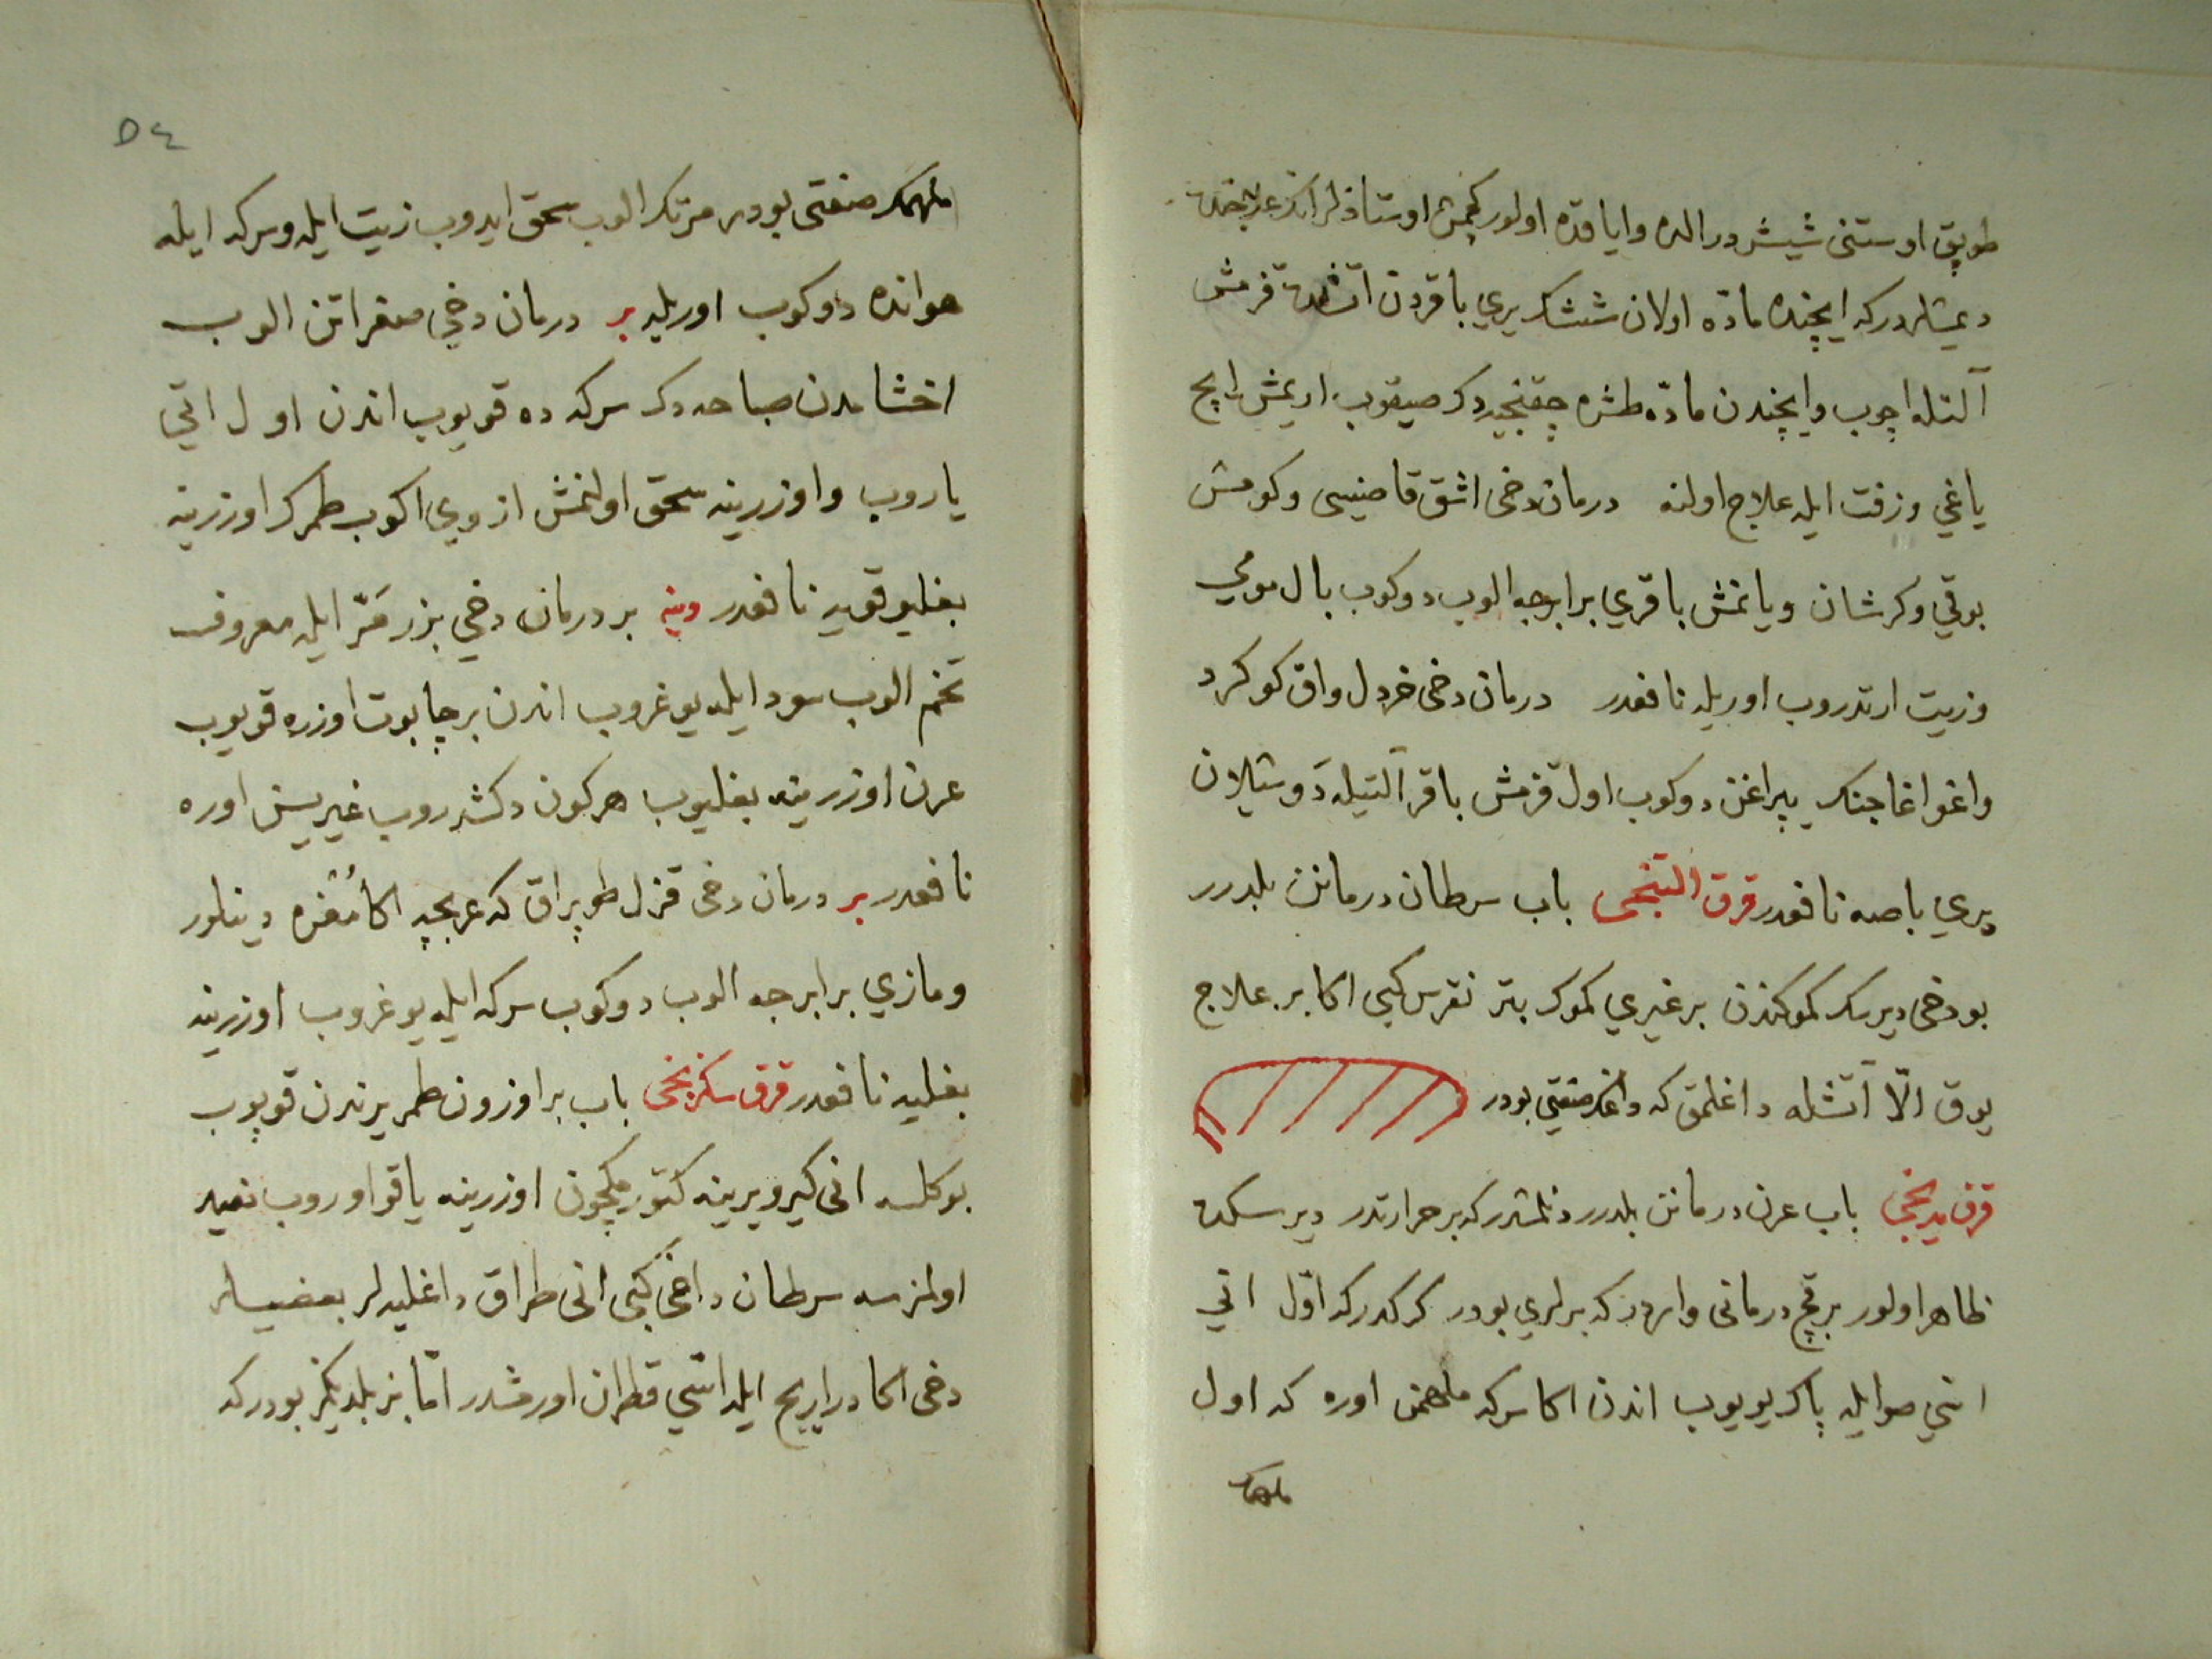 طوپق اوستنی شیشدر الده و ایاقده اولور کچمش اوستاذلر انك علاجنده
دیمشلردر که ایچنده مادّه اولان شیشك یری باقردن آتشده قزمش
آلتله اچوب و ایچندن مادّه طشره چقنجیه دك صیقوب اریمش ایچ
یاغی و زفت ایله علاج اولنه درمان دخی اشق قاصنیسی و کومش
بوقی و کرشان و یانمش باقری برابرجه الوب دوکوب بال مومی
و زیت ارتدروب اوریله نافعدر درمان دخی خردل و اق کوکرد
و اغو اغاجنك یپراغن دوکوب اول قزمش باقر آلتیله دوشیلان
یری باصه نافعدر قرق التنجی باب سرطان درمانن بلدرر
بو دخی دیرسك کموکندن بر غیری کموك بتر نقرس کبی اکا بر علاج
یوق الّا آتشله داغلمق که داغك صفتی بودر
قرق یدنجی باب عرن درمانن بلدرر دنلمشدر که بر حرارتدر دیرسکده
ظاهر اولور بر قچ درمانی واردر که برلری بودر کرکدر که اوّل انی
اسّی صو ایله پاك یویوب اندن اکا سرکه ملهمن اوره که اول
ملهمك
٥٤
ملهمك صفتی بودر مرتك الوب سحق ایدوب زیت ایله و سرکه ایله
هوانده دوکوب اوریله بر درمان دخی صغر اتن الوب
اخشامدن صباحه دك سرکه ده قویوب اندن اول اتی
یاروب و اوزرینه سحق اولنمش ازوی اکوب طمرك اوزرینه
بغلیو قویه نافعدر وینه بر درمان دخی بزر مرّ ایله معروف
تخم الوب سود ایله یوغروب اندن بر چاپوت اوزره قویوب
عرن اوزرینه بغلیوب هر کون دکشدروب غیریسن اوره
نافعدر بر درمان دخی قزل طوپراق که عربجه اکا مُغره دینلور
و مازی برابرجه الوب دوکوب سرکه ایله یوغروب اوزرینه
بغلیه نافعدر قرق سکزنجی باب بر اوزون طمر یرندن قوپوب
بوکلسه انی کیرو یرینه کتورمکچون اوزرینه یاقو اوروب نفید
اولمزسه سرطان داغی کبی انی طراق داغلیه لر بعضیلر
دخی اکا در ایریح ایله اسّی قطران اورمشدر امّا بز بلدیکمز بودر که